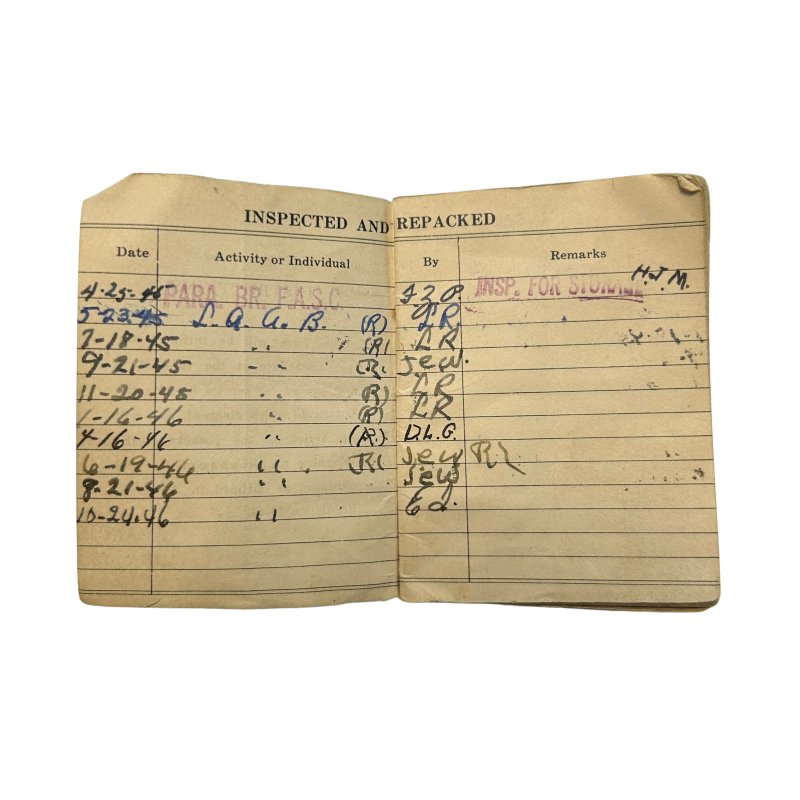 INSPECTED AND REPACKED
Date Activity or Individual By Remarks
4-25-45 PARA. BR. F.A.S.C. INSP. FOR STORAGE H.J.M.
5-23-45 L. A. A. B. (R) LR
7-18-45 " (R) LR
9-21-45 " (R) Jew.
11-20-45 " (R) LR
1-16-46 " (R) LR
4-16-46 " (R) D.L.G.
6-19-46 " (R) Jew
8-21-46 " Jew
10-24-46 "